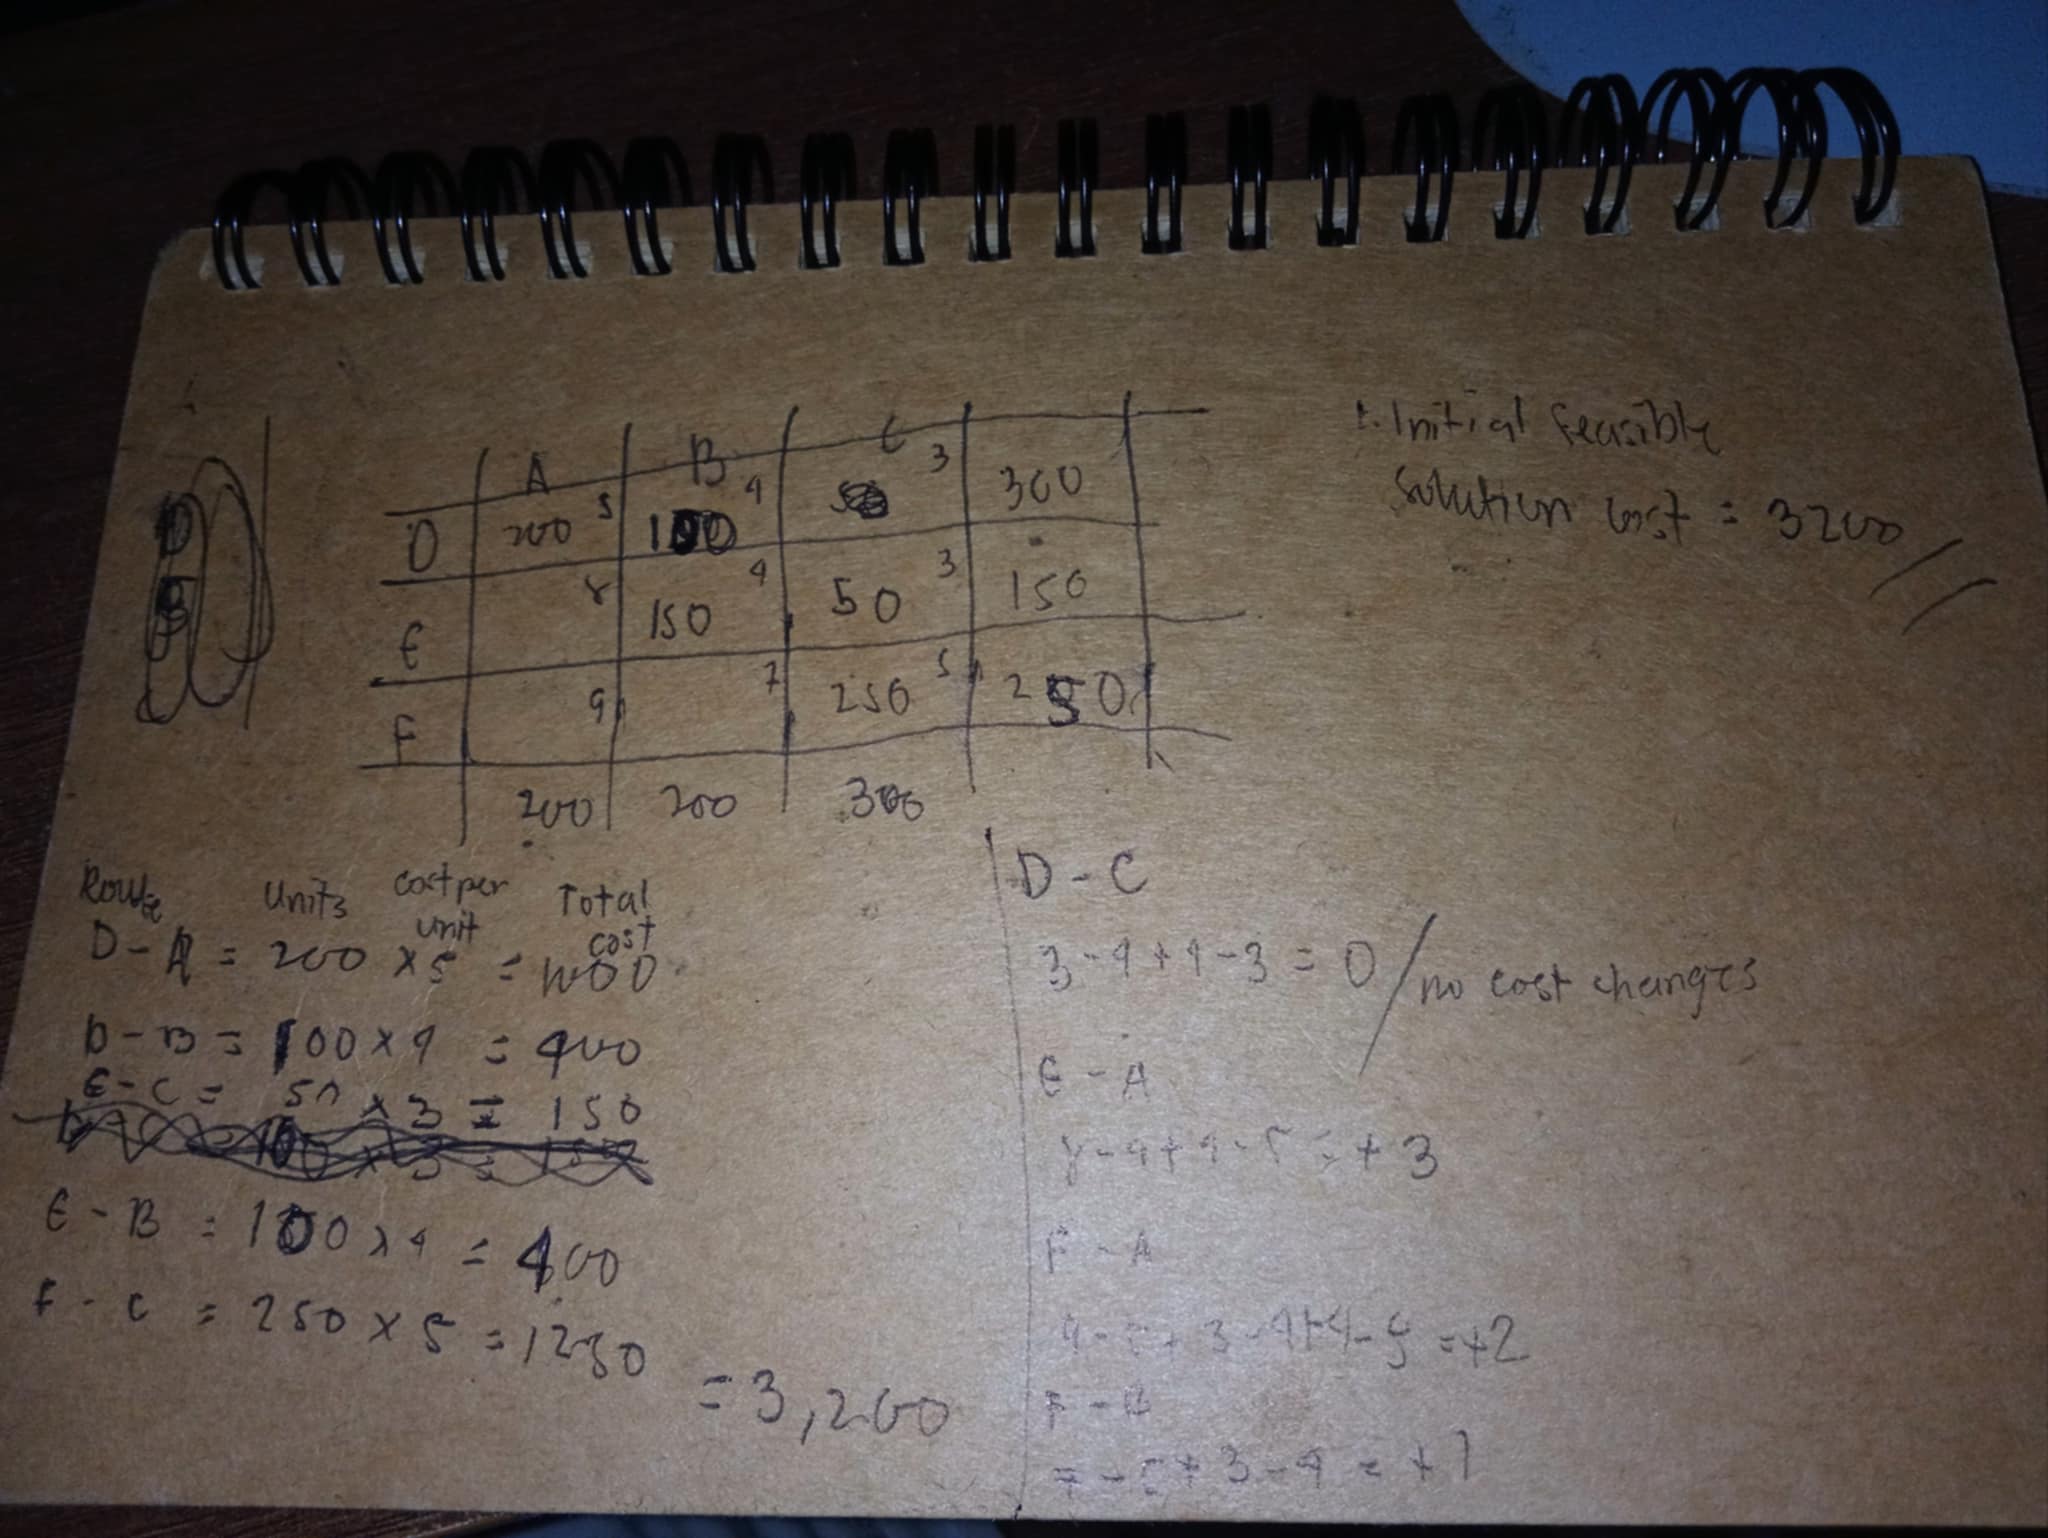 A B C
D 200 5 100 4 3 300
E 8 150 4 50 3 150
F 9 7 250 5 250
200 200 300
1. Initial feasible
solution cost = 3200
Route Units cost per unit Total cost
D - A = 200 x 5 = 1000
D - B = 100 x 4 = 400
E - C = 50 x 3 = 150
E - B = 100 x 4 = 400
F - C = 250 x 5 = 1250
= 3,200
D - C
3 - 4 + 4 - 3 = 0 / no cost changes
E - A
8 - 4 + 4 - 5 = + 3
F - A
9 - 5 + 3 - 4 + 4 - 5 = +2
F - B
7 - 5 + 3 - 4 = + 1